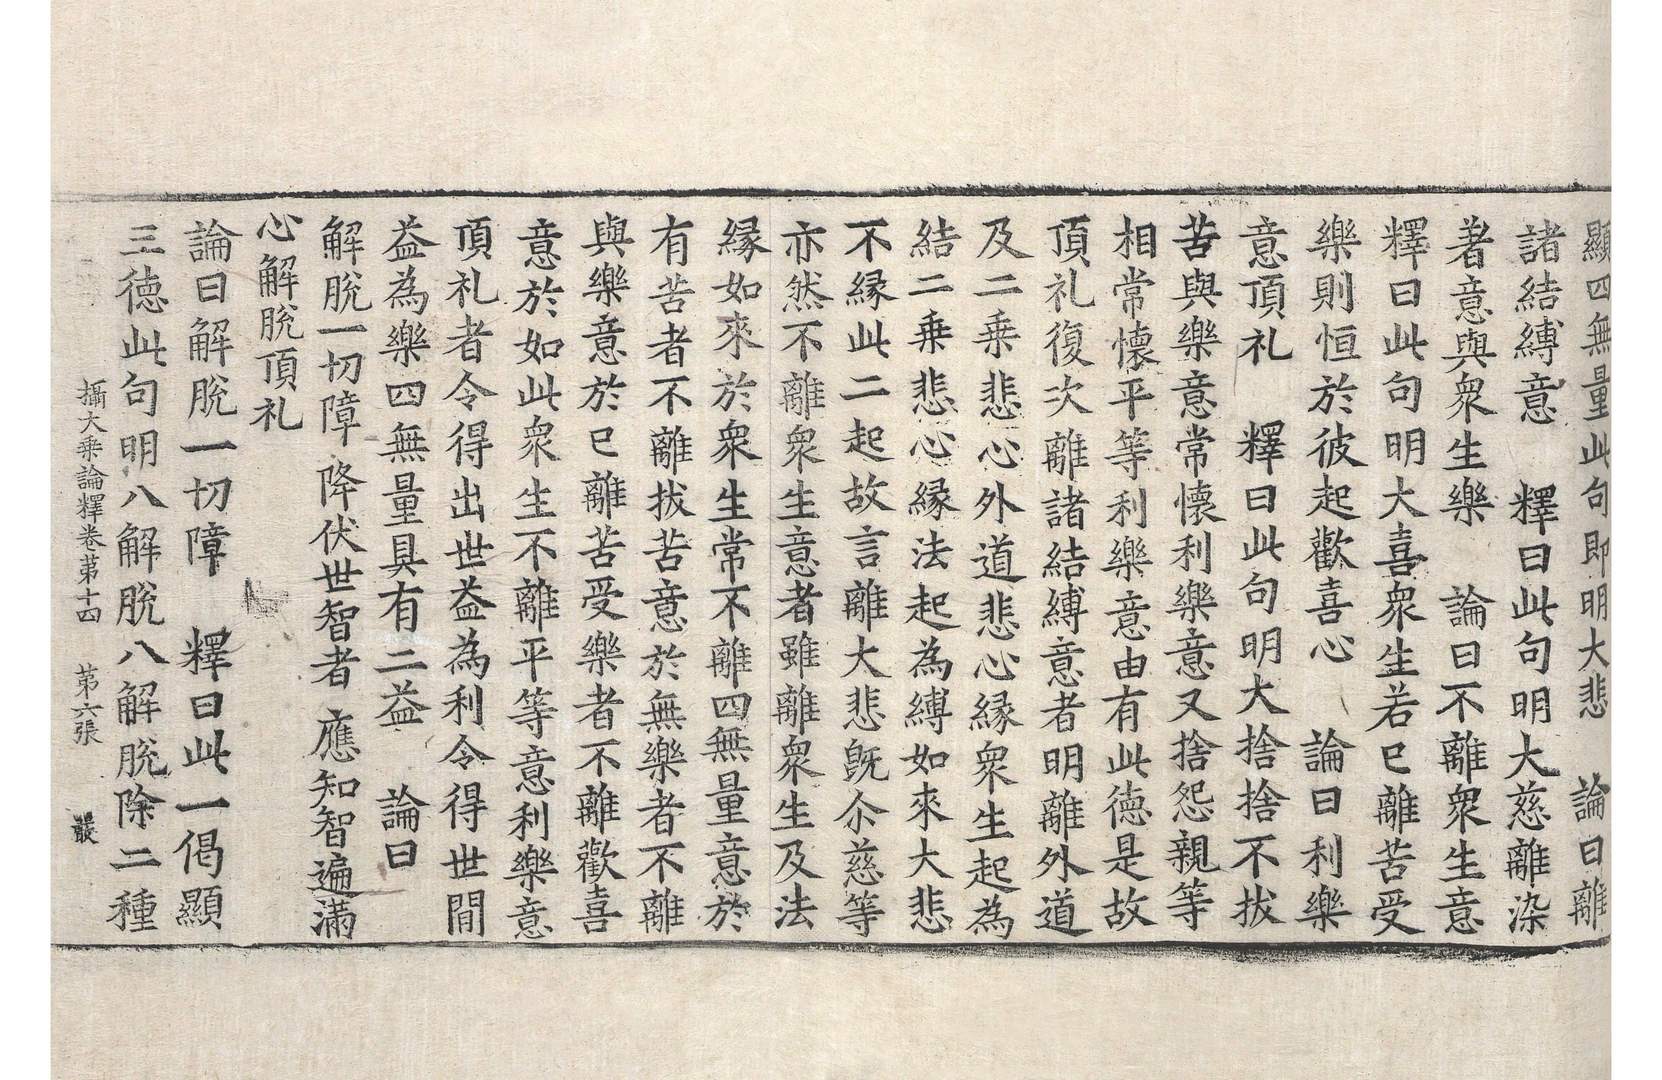 顯四無量此句即明大悲　論曰離
諸結縛意　釋曰此句明大慈離染
著意與衆生樂　論曰不離衆生意
釋曰此句明大喜衆生若已離苦受
樂則恒於彼起歡喜心　論曰利樂
意頂礼　釋曰此句明大捨捨不拔
苦與樂意常懷利樂意又捨怨親等
相常懷平等利樂意由有此德是故
頂礼復次離諸結縛意者明離外道
及二乗悲心外道悲心縁衆生起為
結二乗悲心縁法起為縛如來大悲
不縁此二起故言離大悲既尒慈等
亦然不離衆生意者雖離衆生及法
縁如來於衆生常不離四無量意於
有苦者不離拔苦意於無樂者不離
與樂意於已離苦受樂者不離歡喜
意於如此衆生不離平等意利樂意
頂礼者令得出世益為利令得世間
益為樂四無量具有二益　論曰
解脫一切障　降伏世智者　應知智遍滿
心解脫頂礼
論曰解脫一切障　釋曰此一偈顯
三德此句明八解脫八解脫除二種
攝大乗論釋卷苐十四　苐六張　叢